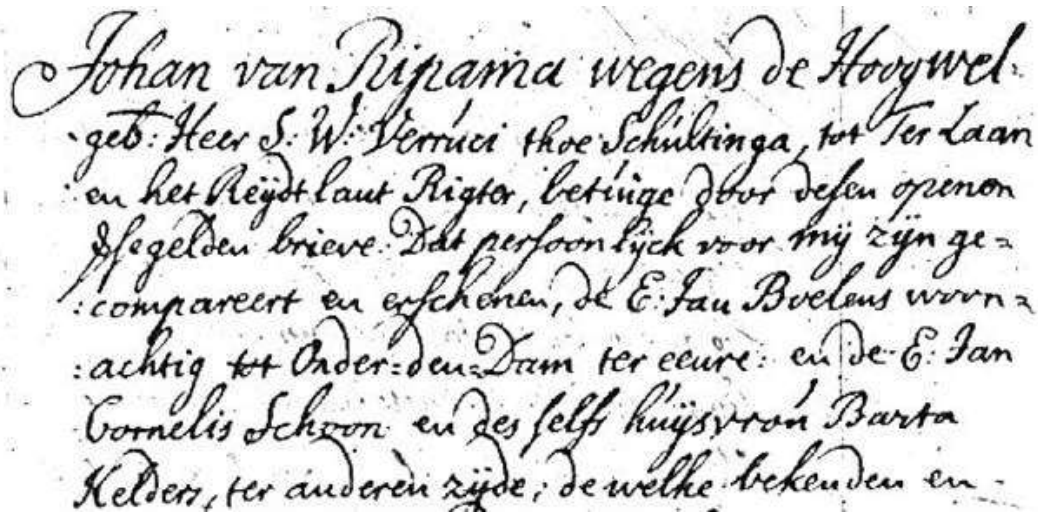 Johan van Ripama wegens de Hoogwel-
geb: Heer S: W: Verruci thoe Schultinga, tot Ter Laan
en het Reydt laut Rigter, betuige door desen openen
Besegelden brieve. Dat persoonlijck voor mij zijn ge=
:compareert en erschenen, de E: Jan Boelens woon=
:achtig tot Onder=den=Dam ter eeure: en de E: Jan
Cornelis Schoon en des selfs huijsvrou Barta
Kelders, ter anderen zijde, de welke bekenden en